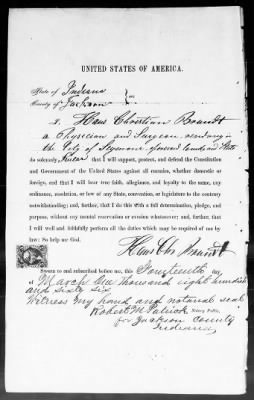 UNITED STATES OF AMERICA.
State of Indiana
County of Jackson } ss:
I, Hans Christian Brandt
a Physician and Surgeon, residing in
the City of Seymour aforesaid County and State
do solemnly Swear that I will support, protect, and defend the Constitution
and Government of the United States against all enemies, whether domestic or
foreign, and that I will bear true faith, allegiance, and loyalty to the same, any
ordinance, resolution, or law of any State, convention, or legislature to the contrary
notwithstanding; and, further, that I do this with a full determination, pledge, and
purpose, without any mental reservation or evasion whatsoever; and, further, that
I will well and faithfully perform all the duties which may be required of me by
law: So help me God.
Hans Chr Brandt
Sworn to and subscribed before me, this Fourteenth day
of March One thousand eight hundred
and sixty six
Witness my hand and notarial seal
Robert M Patrick Notary Public.
for Jackson County
Indiana